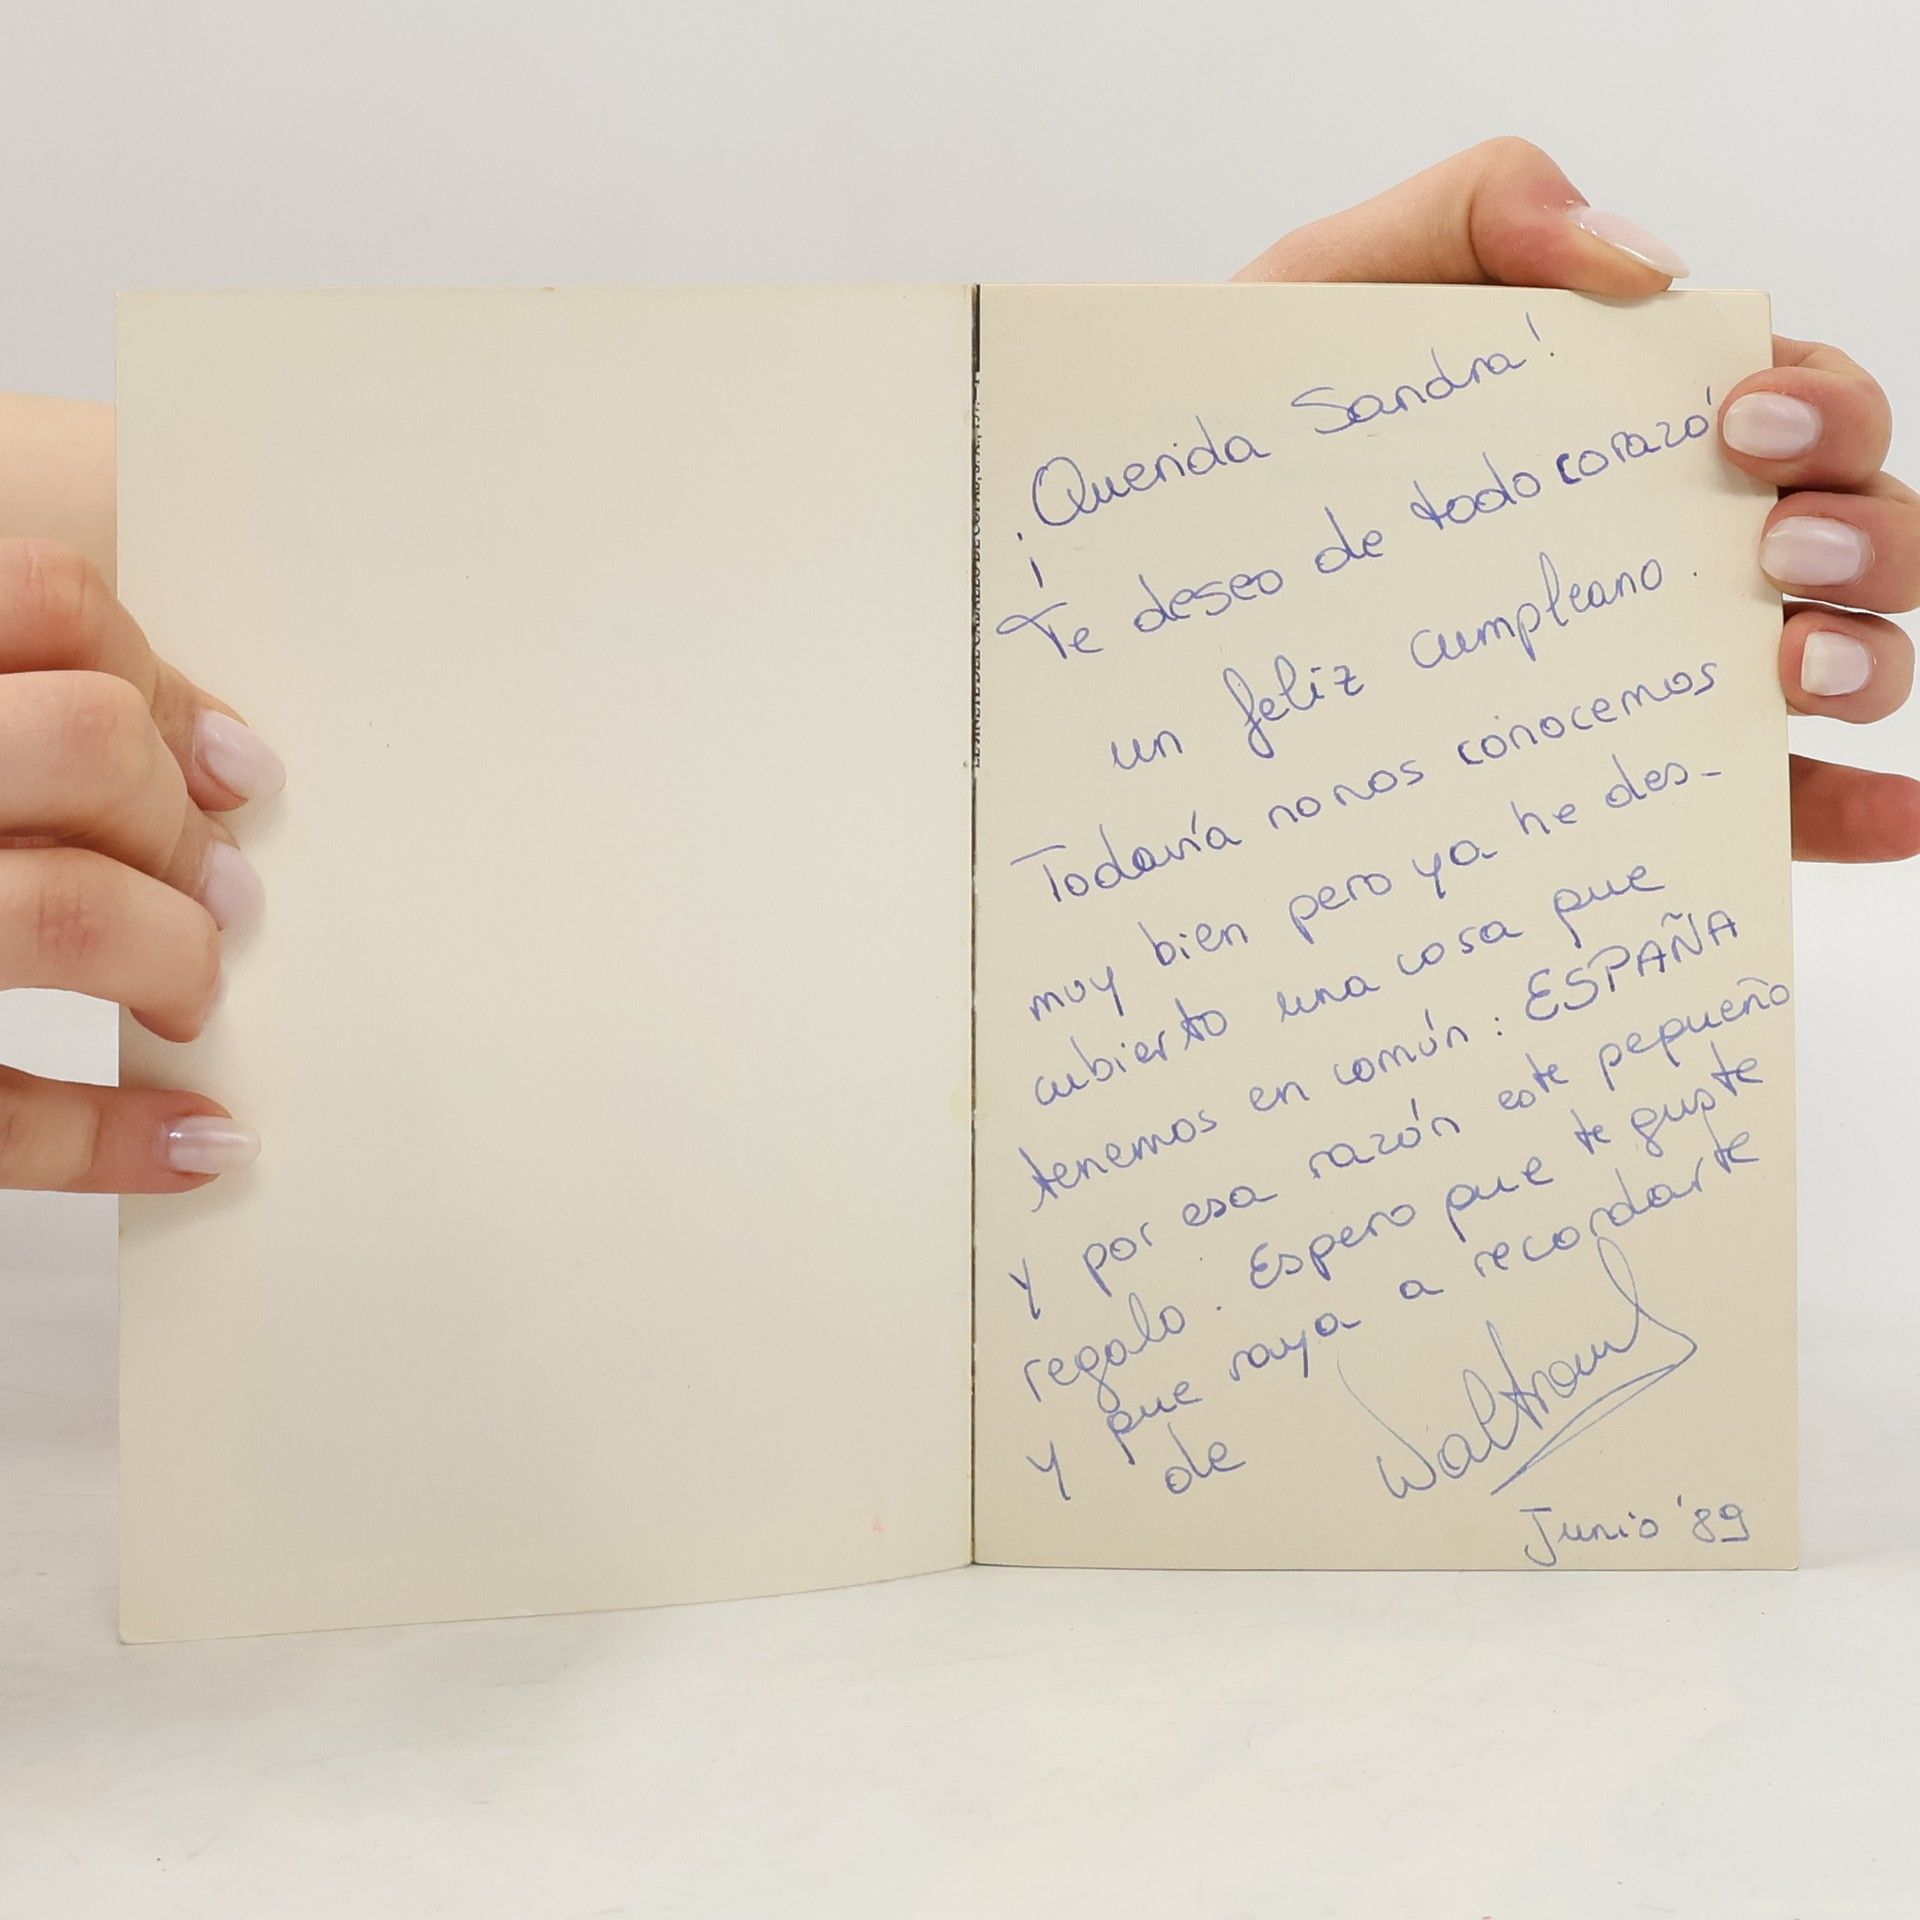 ¡Querida Sandra!
¡Te deseo de todo corazó
un feliz cumpleano.
Todavía no nos conocemos
muy bien pero ya he des-
cubierto una cosa que
tenemos en común: ESPAÑA
y por esa razón este pequeño
regalo. Espero que te guste
y que vaya a recordarte
de Waltraud
Junio '89